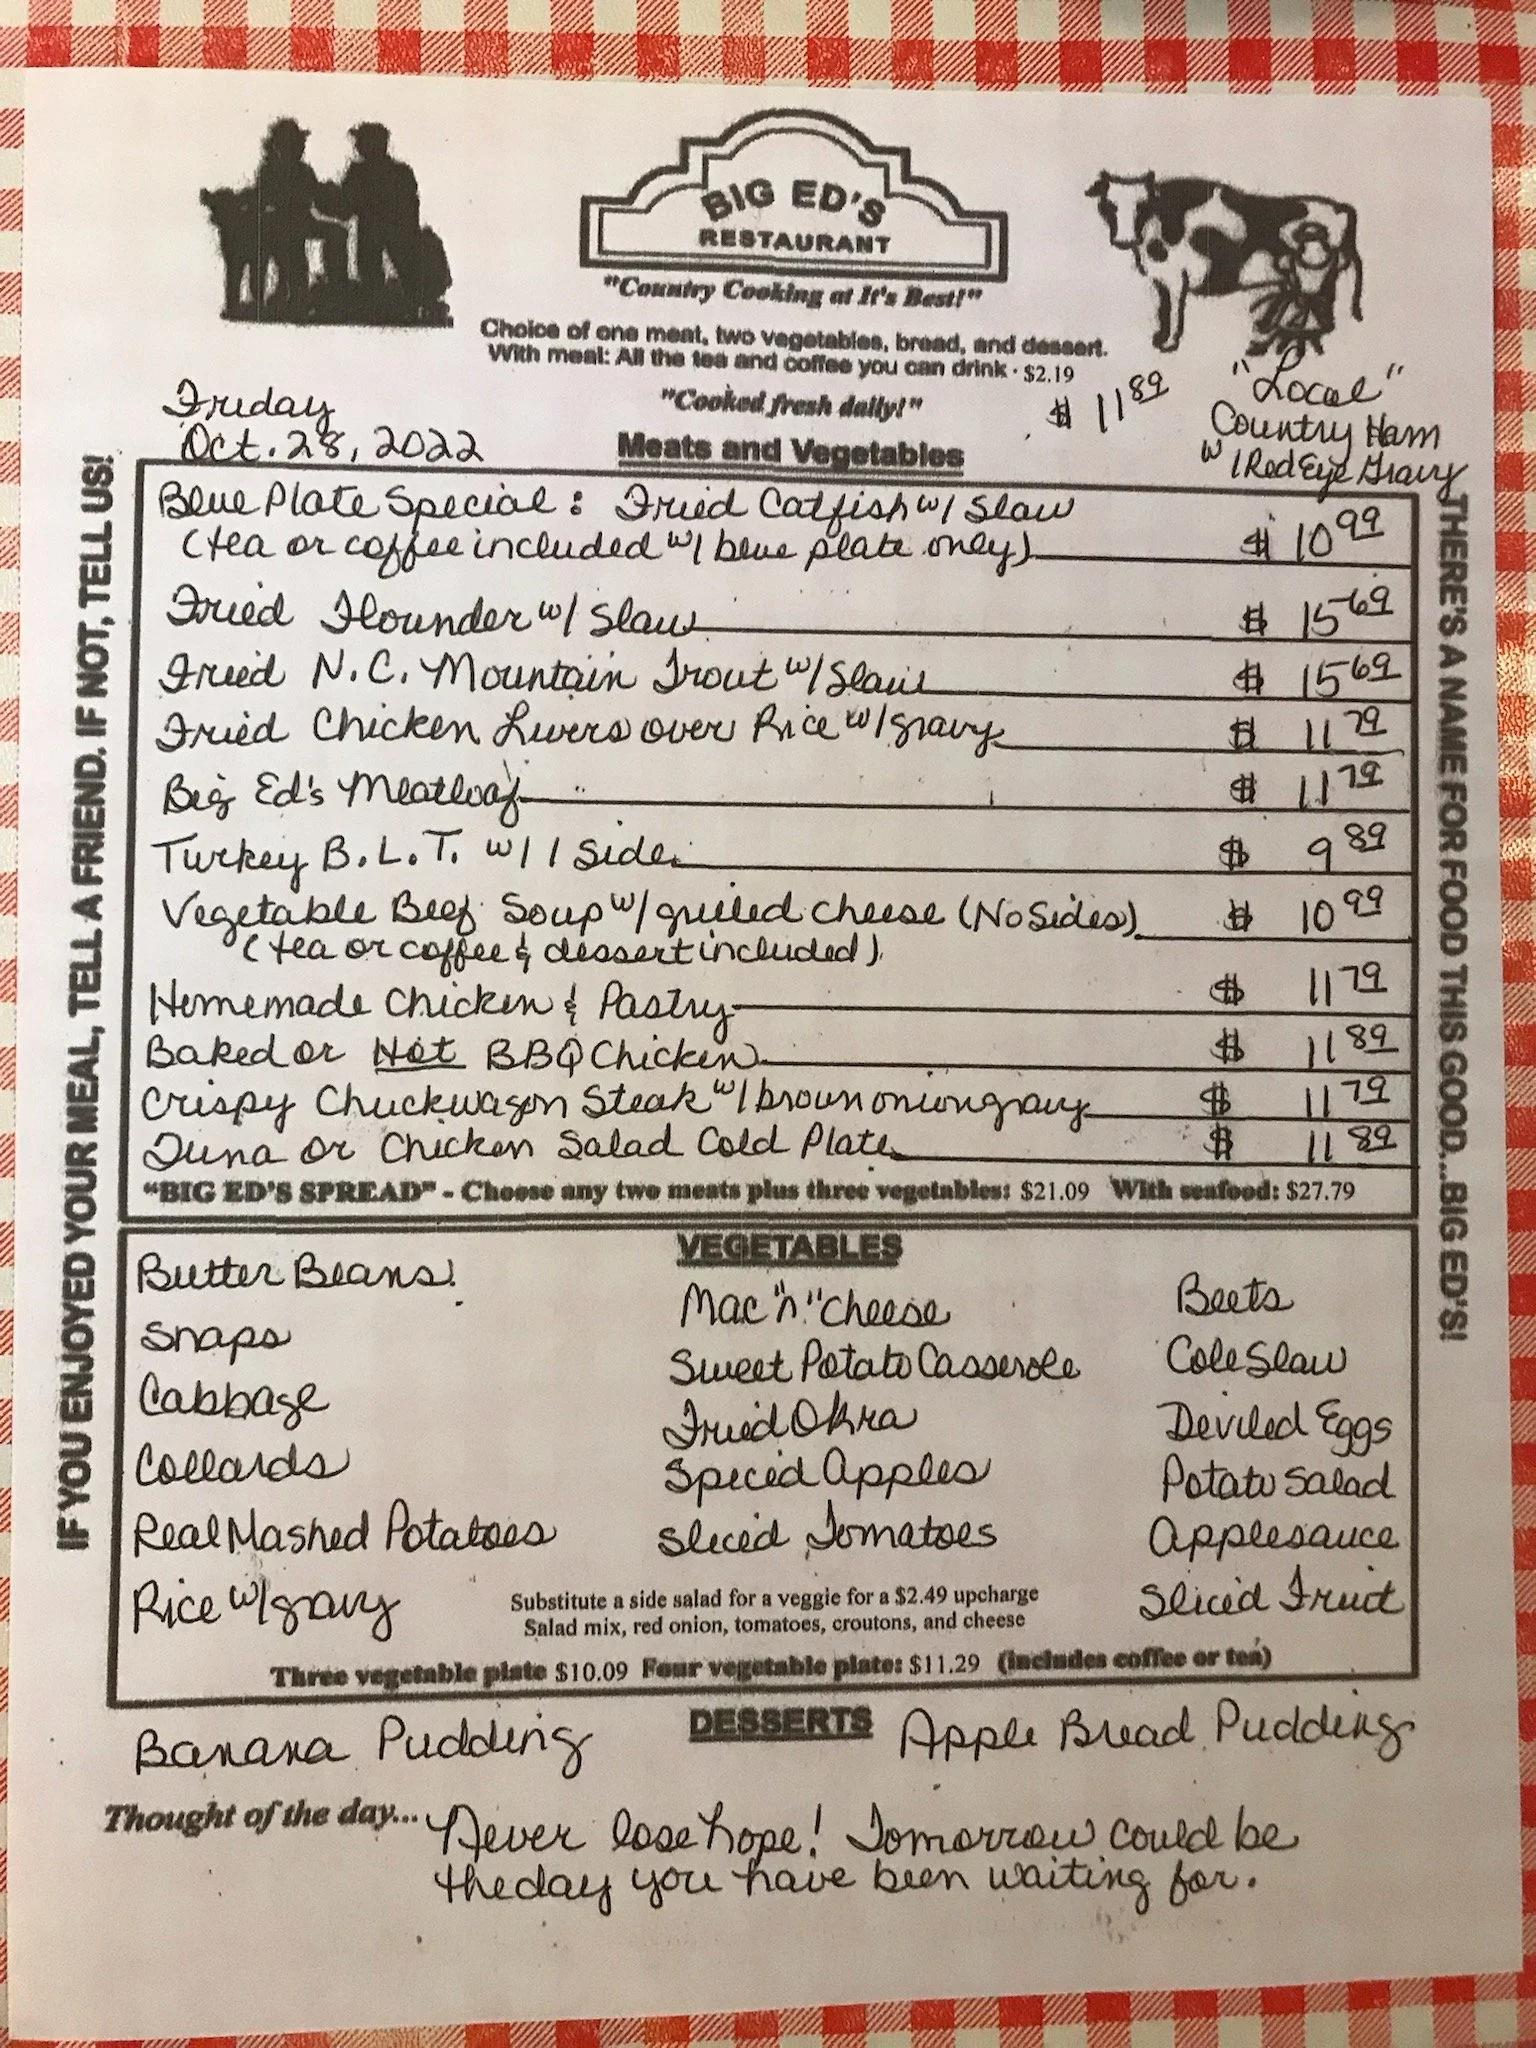 BIG ED'S
RESTAURANT
"Country Cooking at It's Best!"
Choice of one meat, two vegetables, bread, and dessert.
With meal: All the tea and coffee you can drink · $2.19
"Cooked fresh daily!"
Friday
Oct. 28, 2022
$ 11 89
"Local"
Country Ham
w/Red Eye Gravy
Meats and Vegetables
IF YOU ENJOYED YOUR MEAL, TELL A FRIEND. IF NOT, TELL US!
THERE'S A NAME FOR FOOD THIS GOOD...BIG ED'S!
Blue Plate Special: Fried Catfish w/ Slaw
(tea or coffee included w/ blue plate only) $ 10 99
Fried Flounder w/ Slaw $ 15 69
Fried N.C. Mountain Trout w/ Slaw $ 15 69
Fried Chicken Livers over Rice w/gravy $ 11 79
Big Ed's Meatloaf $ 11 79
Turkey B.L.T. w/ 1 side $ 9 89
Vegetable Beef Soup w/ grilled cheese (No Sides) $ 10 99
(tea or coffee & dessert included)
Homemade Chicken & Pastry $ 11 79
Baked or Hot BBQ Chicken $ 11 89
Crispy Chuckwagon Steak w/ brown onion gravy $ 11 79
Tuna or Chicken Salad Cold Plate $ 11 89
"BIG ED'S SPREAD" - Choose any two meats plus three vegetables: $21.09 With seafood: $27.79
VEGETABLES
Butter Beans
Snaps
Cabbage
Collards
Real Mashed Potatoes
Rice w/gravy
Mac "n" Cheese
Sweet Potato Casserole
Fried Okra
Spiced Apples
Sliced Tomatoes
Beets
Cole Slaw
Deviled Eggs
Potato Salad
Applesauce
Sliced Fruit
Substitute a side salad for a veggie for a $2.49 upcharge
Salad mix, red onion, tomatoes, croutons, and cheese
Three vegetable plate $10.09 Four vegetable plate: $11.29 (includes coffee or tea)
DESSERTS
Banana Pudding
Apple Bread Pudding
Thought of the day... Never lose hope! Tomorrow could be
the day you have been waiting for.